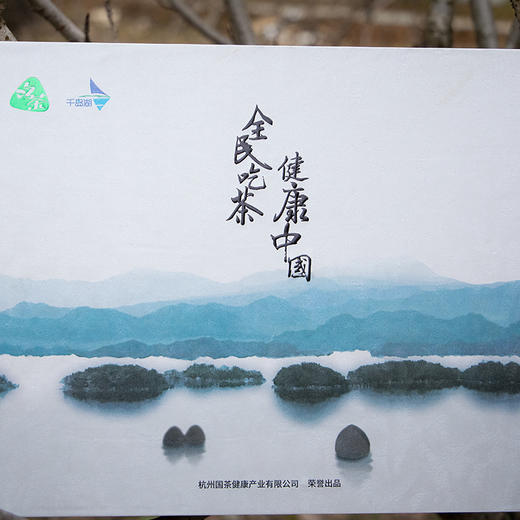 千岛湖
全民吃茶
健康中國
杭州国茶健康产业有限公司 荣誉出品